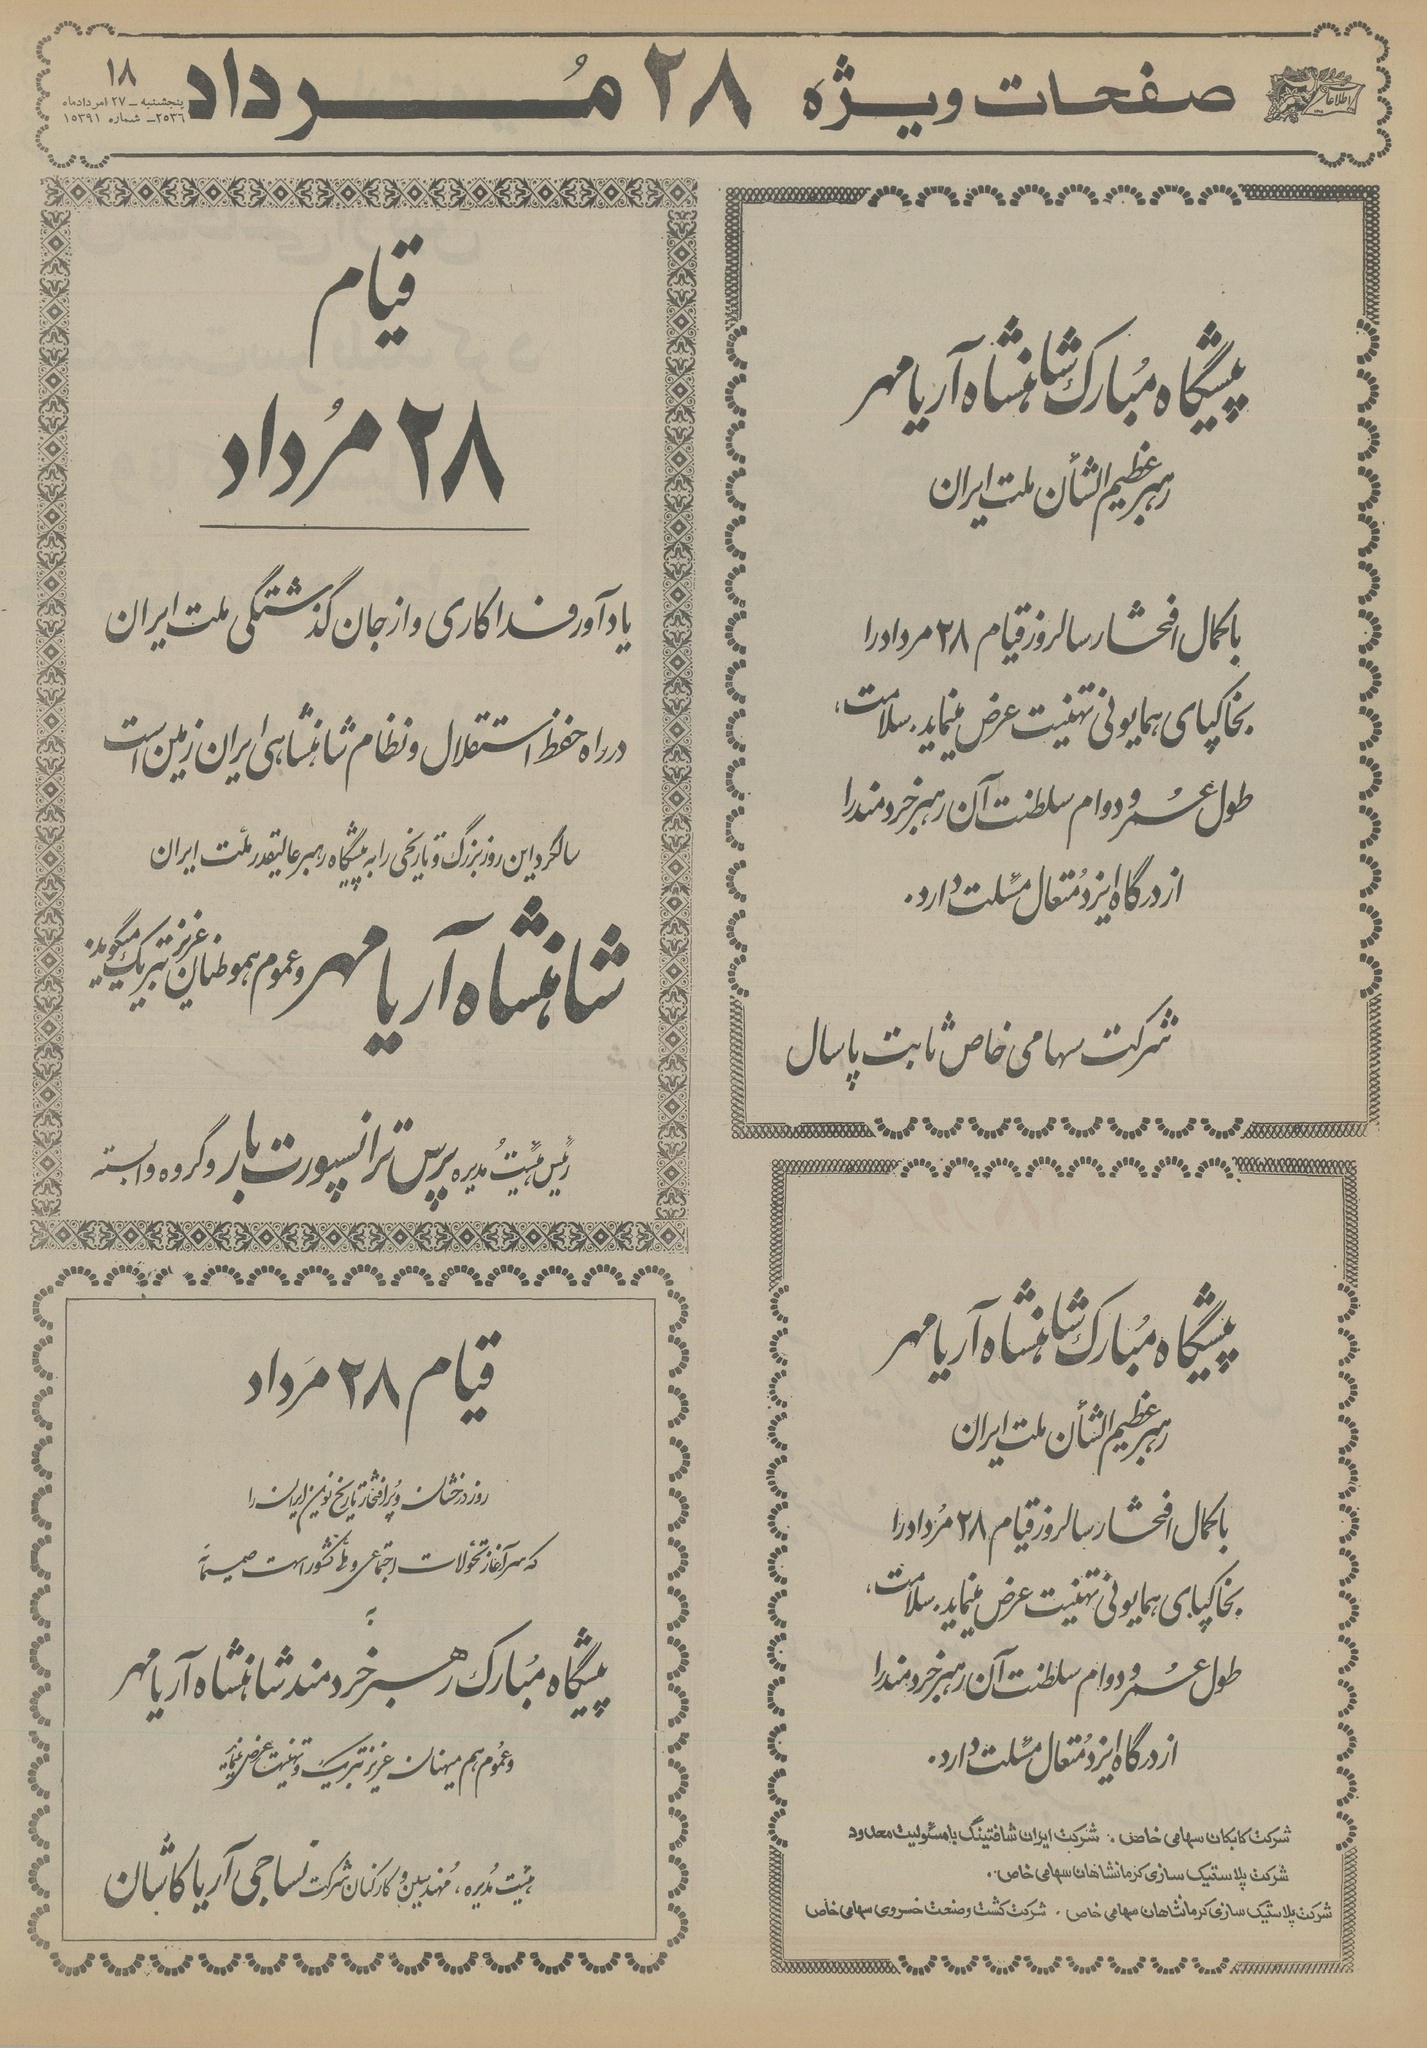 اطلاعات
صفحات ویژه ۲۸ مُرداد
۱۸
پنجشنبه - ۲۷ امردادماه
۲۵۳۶ - شماره ۱۵۳۹۱
پیشگاه مُبارک شاهنشاه آریامهر
رهبر عظیم الشأن ملت ایران
با کمال افتخار سالروز قیام ۲۸ مرداد را
بخاکپای همایونی تهنیت عرض مینماید. سلامت،
طول عُمر و دوام سلطنت آن رهبر خردمند را
از درگاه ایزد مُتعال مسئلت دارد.
شرکت سهامی خاص ثابت پاسال
قیام
۲۸ مُرداد
یادآور فداکاری و از جان گذشتگی ملت ایران
در راه حفظ استقلال و نظام شاهنشاهی ایران زمین است
سالگرد این روز بزرگ و تاریخی را به پیشگاه رهبر عالیقدر ملت ایران
شاهنشاه آریامهر و عموم هموطنان عزیز تبریک میگوید.
رئیس هیئت مُدیره پرس ترانسپورت بار و گروه وابسته
پیشگاه مُبارک شاهنشاه آریامهر
رهبر عظیم الشأن ملت ایران
با کمال افتخار سالروز قیام ۲۸ مُرداد را
بخاکپای همایونی تهنیت عرض مینماید. سلامت،
طول عُمر و دوام سلطنت آن رهبر خردمند را
از درگاه ایزد مُتعال مسئلت دارد.
شرکت کابکان سهامی خاص. شرکت ایران شافتینگ با مسئولیت محدود
شرکت پلاستیک سازی کرمانشاهان سهامی خاص.
شرکت پلاستیک سازی کرمانشاهان سهامی خاص. شرکت کشت و صنعت خسروی سهامی خاص
قیام ۲۸ مَرداد
روز درخشان و پُرافتخار تاریخ نوین ایران را
که سرآغاز تحولات اجتماعی و ملی کشور است صمیمانه
به
پیشگاه مُبارک رهبر خردمند شاهنشاه آریامهر
و عُموم هم میهنان عزیز تبریک و تهنیت عرض مینماید
هیئت مُدیره، مُهندسین و کارکنان شرکت نساجی آریا کاشان